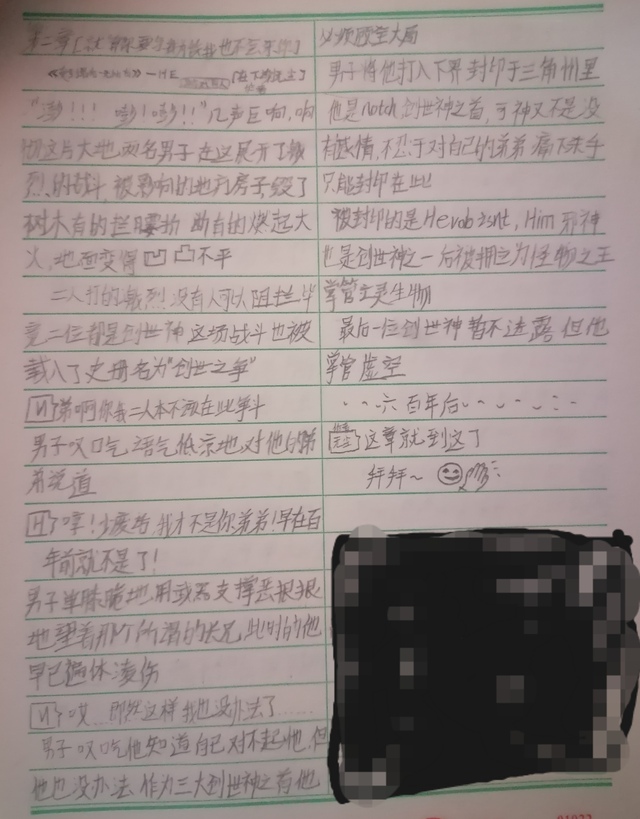 第二章
"嘭!!! 嘭!嘭!!"几声巨响,响
彻这片大地,两名男子在这展开了激
烈的战斗,被影响的地方房子毁了
树木有的拦腰折 断有的燃起大
火,地面变得凹凸不平
二人打的激烈没有人可以阻拦,毕
竟二位都是创世神这场战斗也被
载入了史册名为"创世之争"
弟啊你我二人本不该在此争斗
男子叹口气,语气低凉地对他的弟
弟说道
H 哼!少废话,我才不是你弟弟!早在百
年前就不是了!
男子单膝跪地用武器支撑恶狠狠
地望着那个所谓的大兄,此时的他
早已遍体凌伤
哎....既然这样我也没办法了......
男子叹气他知道自己对不起他,但
他也没办法,作为三大创世神之首他
必须顾全大局
男子将他打入下界封印于三角州里
他是Notch创世神之首,可神又不是没
有感情,不忍于对自己的弟弟痛下杀手
只能封印在此
被封印的是Herobrisnt,Him邪神
也是创世神之一后被拥立为怪物之王
掌管主灵生物
最后一位创世神暂不透露但他
掌管虚空
六百年后
这章就到这了
拜拜~